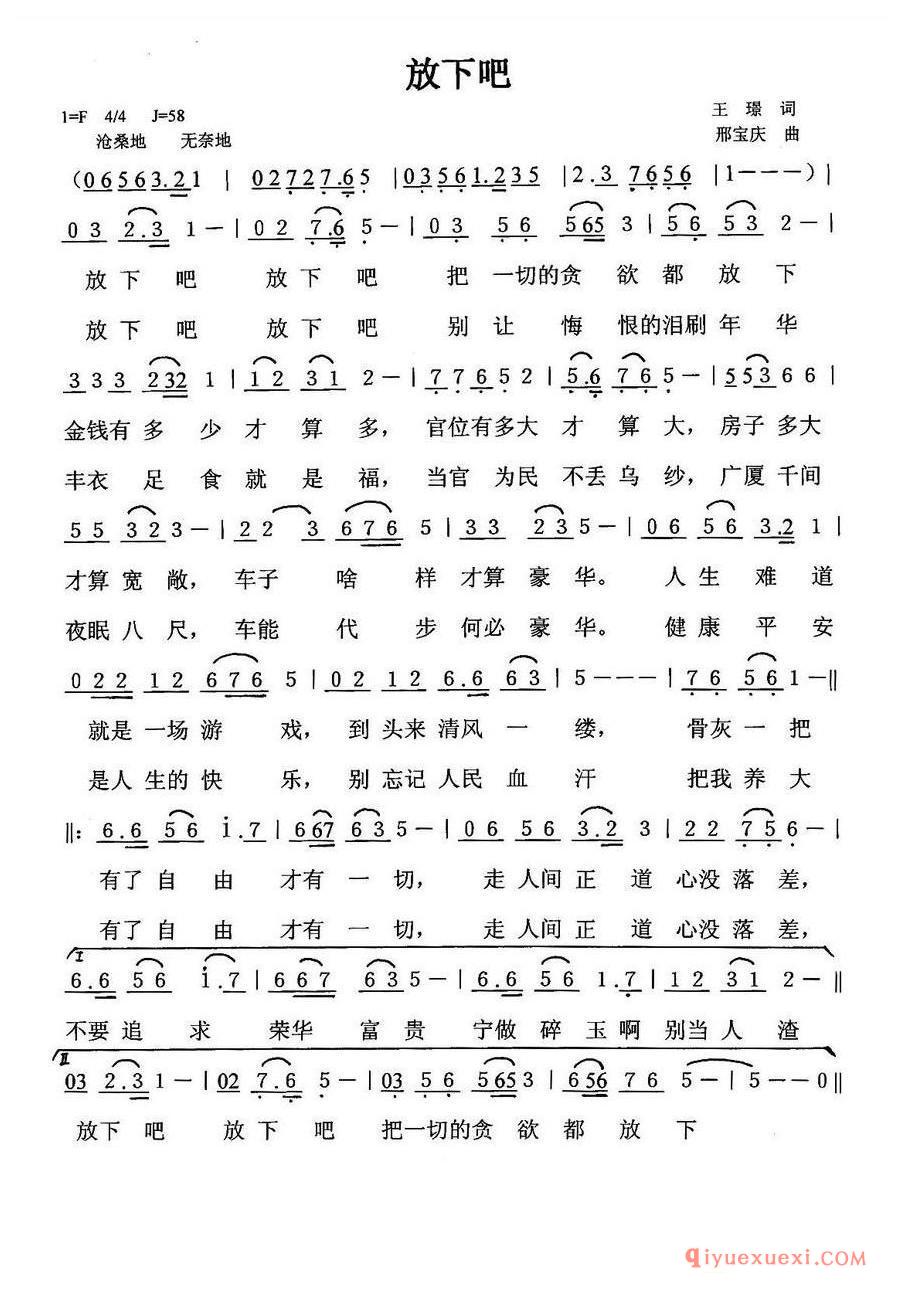 放下吧
1=F 4/4 J=58 王璟 词
沧桑地 无奈地 邢宝庆 曲
（06563.21 | 02727.65 | 03561.235 | 2.3 7656 | 1---）|
03 2.3 1- | 02 7.6 5- | 03 56 5653 | 56 53 2- |
放下吧 放下吧 把一切的贪欲都放下
放下吧 放下吧 别让悔恨的泪刷年华
333 2321 | 12 31 2- | 77652 | 5.6 76 5- | 55366 |
金钱有多少才算多，官位有多大才算大，房子多大
丰衣足食就是福，当官为民不丢乌纱，广厦千间
55 323- | 22 3 6765 | 33 235- | 06 56 3.2 1 |
才算宽敞，车子啥样才算豪华。人生难道
夜眠八尺，车能代步何必豪华。健康平安
022 12 676 5 | 02 12 6.6 63 | 5--- | 76 56 1-||
就是一场游戏，到头来清风一缕，骨灰一把
是人生的快乐，别忘记人民血汗 把我养大
||: 6.6 56 i.7 | 667 635- | 06 56 3.2 3 | 22 756- |
有了自由才有一切，走人间正道心没落差，
有了自由才有一切，走人间正道心没落差，
I
6.6 56 i.7 | 667 635- | 6.6 56 1.7 | 12 31 2-||
不要追求荣华富贵宁做碎玉啊别当人渣
II
03 2.3 1- | 02 7.6 5- | 03 56 5653 | 656 76 5- | 5--0||
放下吧 放下吧 把一切的贪欲都放下
qiyuexuexi.com